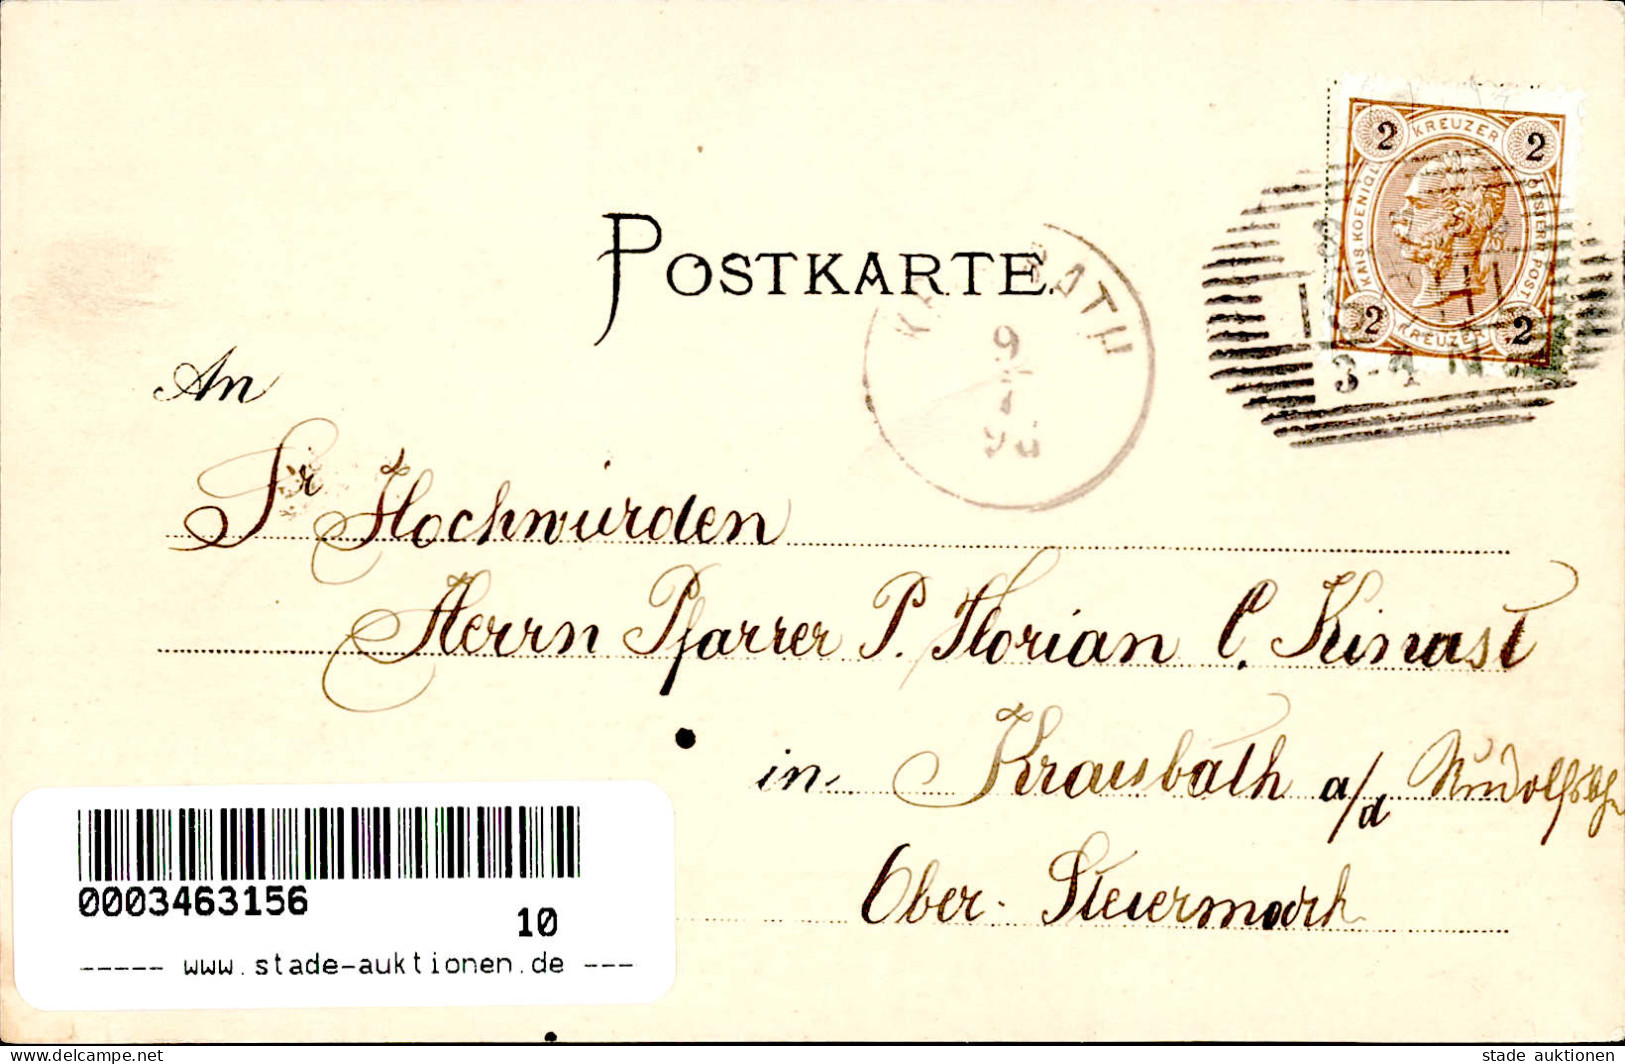 POSTKARTE.
An
Sr Hochwürden
Herrn Pfarrer P. Florian C. Kinast
in Kraubath a/d
Ober-Steiermark
2 KREUZER 2
KAIS. KOENIGL. OESTERR. POST
2 KREUZER 2
3-4 N
9
98
0003463156
10
----- www.stade-auktionen.de ---
www.delcampe.net
stade auktionen